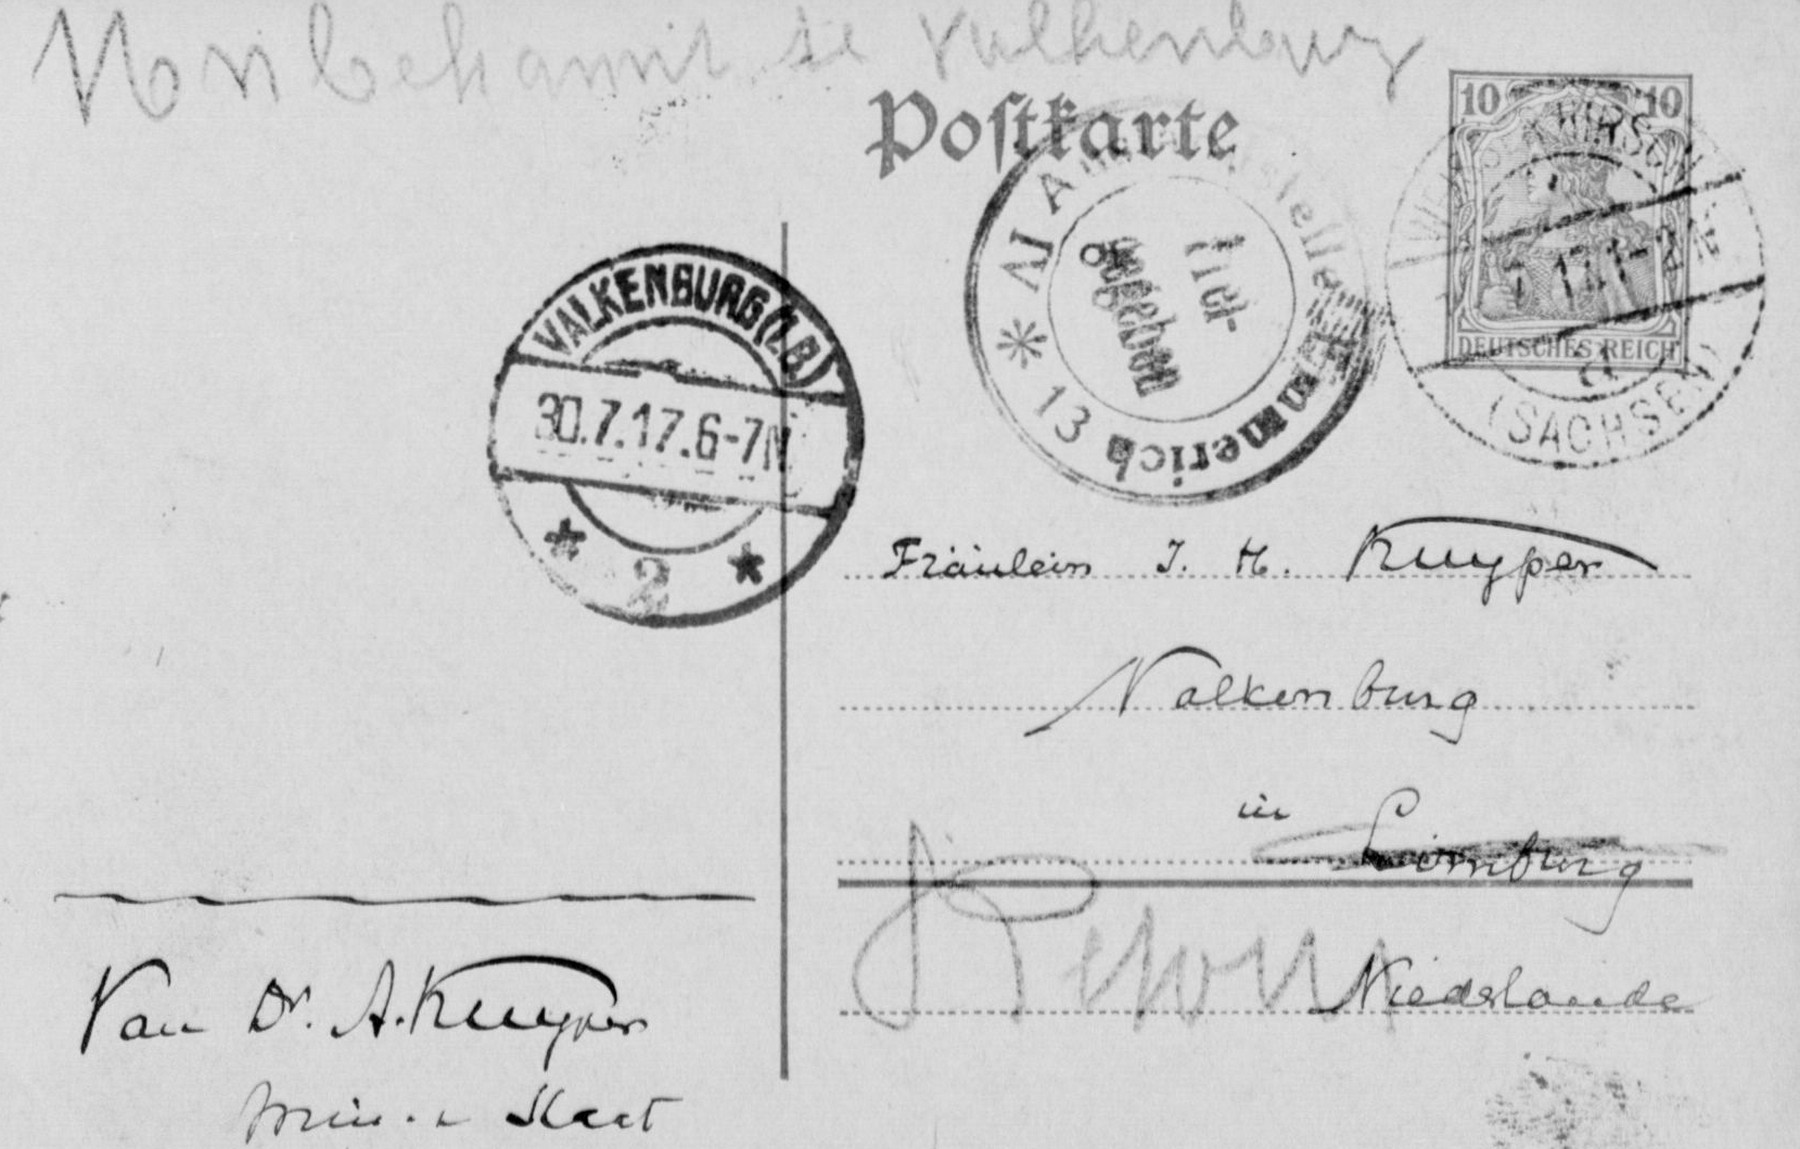 Onbekannt te Valkenburg
Postkarte
10 10
DEUTSCHES REICH
(SACHSEN)
Frei-
gegeben
Emmerich
13
VALKENBURG (LB)
30.7.17.6-7N
2
Fräulein J. H. Kuyper
Valkenburg
in Limburg
Retour
Niederlande
Van Dr. A. Kuyper
Min. v. Staat